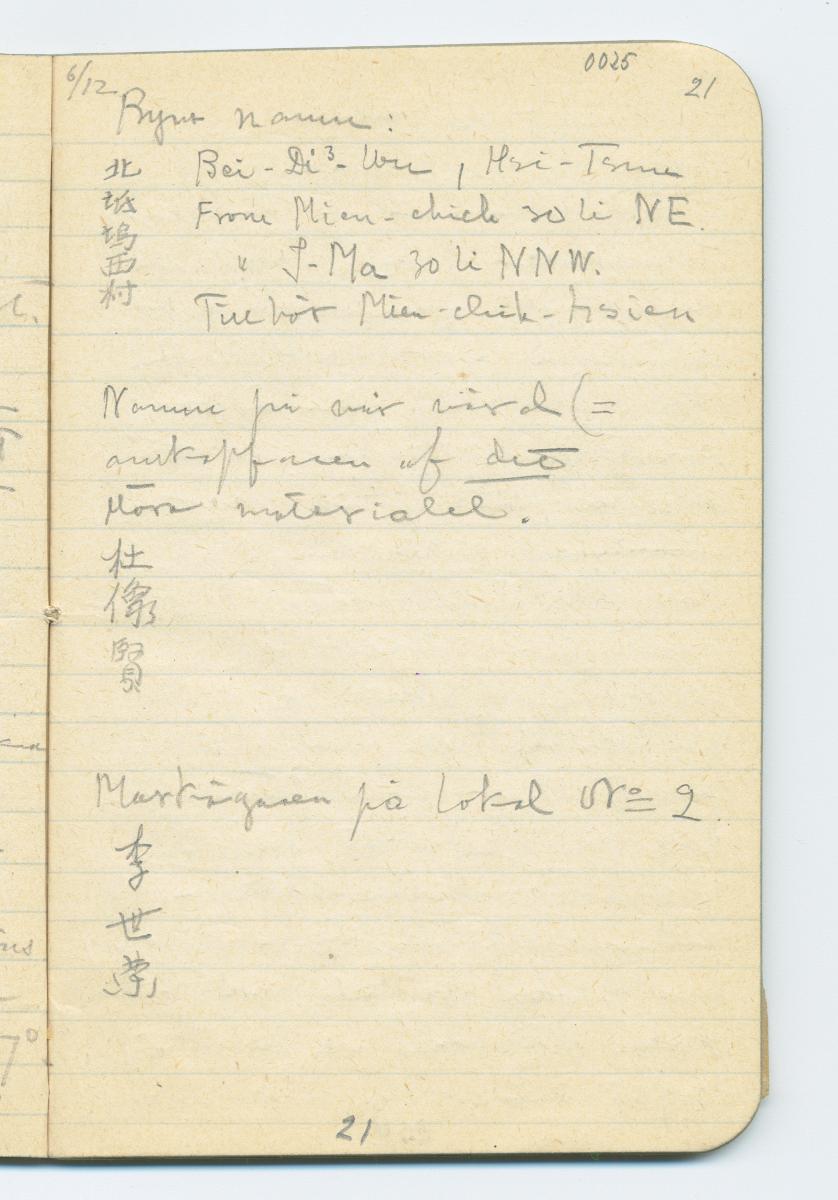 0025
6/12 21
Byns namn:
北坻塢西村
Bei-Di³-Wu, Hsi-Tsun
From Mien-chich 30 li NE.
" I-Ma 30 li NNW.
Tillhör Mien-chih-Hsien
Namn på vår värd (=
anskaffaren af det
stora materialet.
杜像賢
Markägaren på Lokal No 2.
李世荣
21